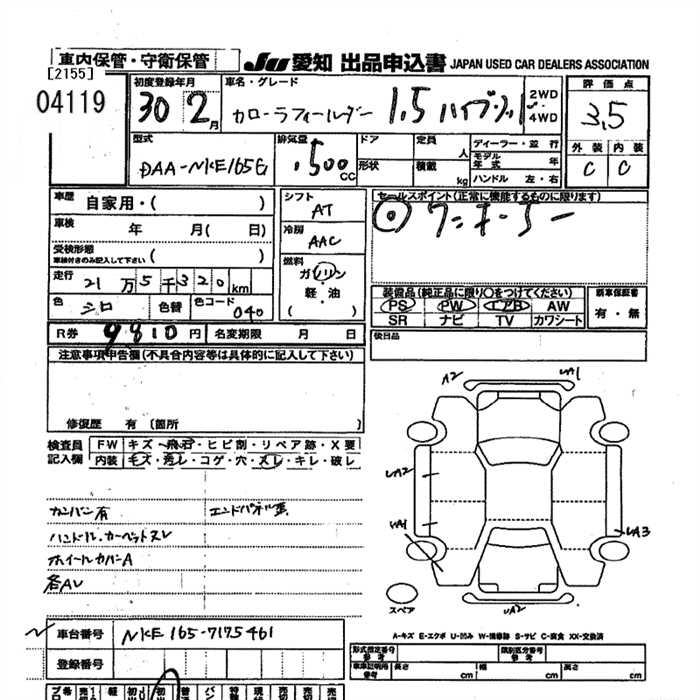 車内保管・守衛保管
JU 愛知 出品申込書 JAPAN USED CAR DEALERS ASSOCIATION
[2155]
04119
初度登録年月
30 2月
車名・グレード
カローラフィールダー 1.5 ハイブリッド
2WD
4WD
評価点
3.5
外装 内装
C C
型式
DAA-NKE165G
排気量
1500 CC
ドア
形状
定員 人
積載 kg
ディーラー・並行
モデル年式 年
ハンドル 左・右
車歴 自家用・( )
車検 年 月(日)
受検形態
車検付きのみ記入して下さい ( )
走行 21万5千320km
色 シロ 色替 色コード 040
R券 9810円 名変期限 月 日
シフト
AT
冷房
AAC
燃料
ガソリン
軽・油
セールスポイント(正常に機能するものに限ります)
◎ワンオーナー
装備品(純正品に限り○をつけてください)
PS PW エアB AW
SR ナビ TV カワシート
新車保証書
有・無
後日品
注意事項申告欄(不具合内容等は具体的に記入して下さい)
修復歴 有 〔箇所 〕
検査員記入欄
FW キズ・飛石・ヒビ割・リペア跡・X要
内装 キズ・汚レ・コゲ・穴・スレ・キレ・破レ
カンバン有
エンドパネル歪
ハンドル・カーペットスレ
ホイールカバーA
各AU
車台番号 NKE165-7175461
登録番号
A2
UA1
UA2
UA1
UA3
UA2
スペア
A-キズ E-エクボ U-凹み W-補修跡 S-サビ C-腐食 XX-交換済
型式指定番号
参考
類別区分番号
参考
車車証明用
参考
長さ cm 幅 cm 高さ cm